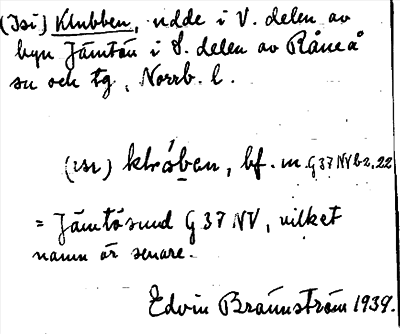 (Isi) Klubben, udde i V. delen av
byn Jämtön i S. delen av Råneå
sn och tg, Norrb. l.
(ısı) klróban, bf. m. G37NVb2,22
= Jämtösund G 37 NV, vilket
namn är senare.
Edvin Brännström 1939.